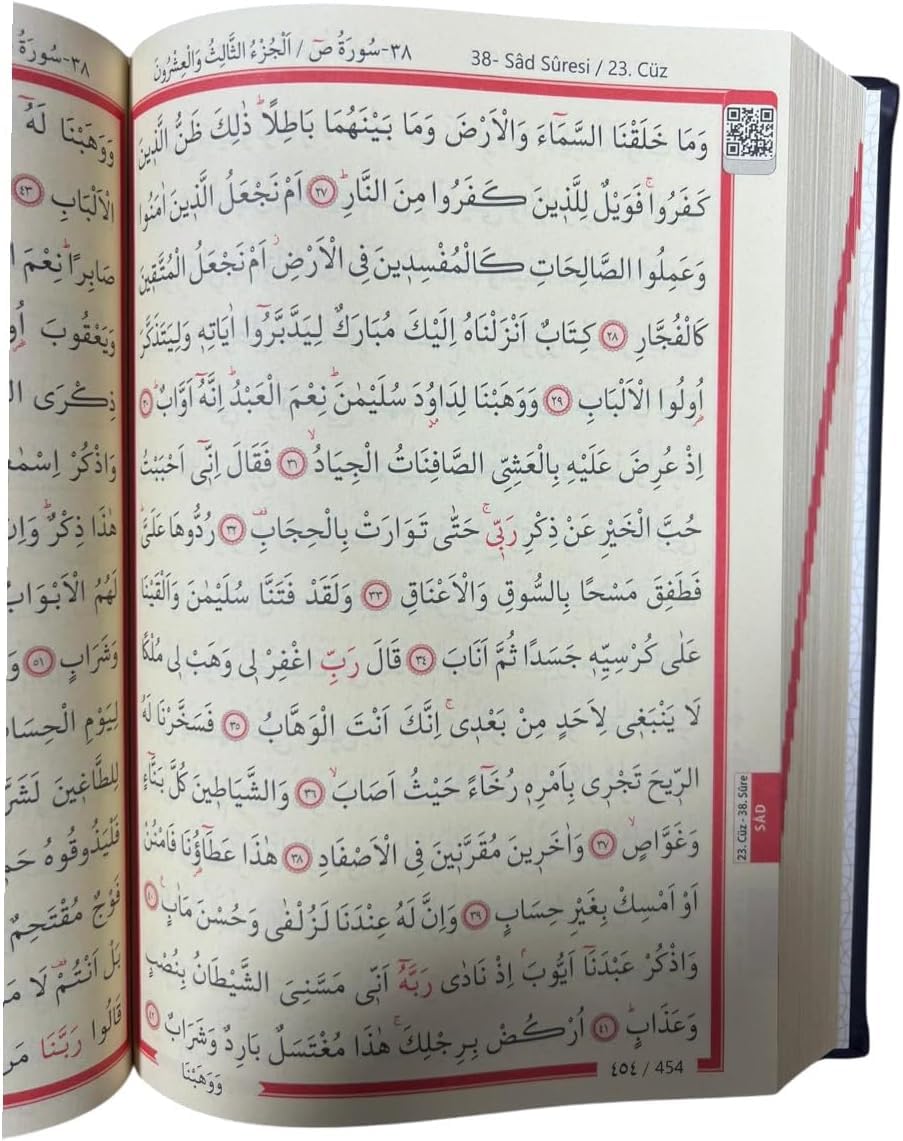 ٣٨-سُورَةُ صٓ / اَلْجُزْءُ الثَّالِثُ وَالْعِشْرُونَ
38- Sâd Sûresi / 23. Cüz
وَمَا خَلَقْنَا السَّمَٓاءَ وَالْاَرْضَ وَمَا بَيْنَهُمَا بَاطِلًاۜ ذٰلِكَ ظَنُّ الَّذ۪ينَ
كَفَرُواۚ فَوَيْلٌ لِلَّذ۪ينَ كَفَرُوا مِنَ النَّارِۜ ﴿٢٧﴾ اَمْ نَجْعَلُ الَّذ۪ينَ اٰمَنُوا
وَعَمِلُوا الصَّالِحَاتِ كَالْمُفْسِد۪ينَ فِي الْاَرْضِۘ اَمْ نَجْعَلُ الْمُتَّق۪ينَ
كَالْفُجَّارِ ﴿٢٨﴾ كِتَابٌ اَنْزَلْنَاهُ اِلَيْكَ مُبَارَكٌ لِيَدَّبَّرُٓوا اٰيَاتِه۪ وَلِيَتَذَكَّرَ
اُو۬لُوا الْاَلْبَابِ ﴿٢٩﴾ وَوَهَبْنَا لِدَاوُ۫دَ سُلَيْمٰنَۜ نِعْمَ الْعَبْدُۜ اِنَّهُٓ اَوَّابٌۜ ﴿٣٠﴾
اِذْ عُرِضَ عَلَيْهِ بِالْعَشِيِّ الصَّافِنَاتُ الْجِيَادُۙ ﴿٣١﴾ فَقَالَ اِنّ۪ٓي اَحْبَبْتُ
حُبَّ الْخَيْرِ عَنْ ذِكْرِ رَبّ۪يۚ حَتّٰى تَوَارَتْ بِالْحِجَابِ۠ ﴿٣٢﴾ رُدُّوهَا عَلَيَّۜ
فَطَفِقَ مَسْحًا بِالسُّوقِ وَالْاَعْنَاقِ ﴿٣٣﴾ وَلَقَدْ فَتَنَّا سُلَيْمٰنَ وَاَلْقَيْنَا
عَلٰى كُرْسِيِّه۪ جَسَدًا ثُمَّ اَنَابَ ﴿٣٤﴾ قَالَ رَبِّ اغْفِرْ ل۪ي وَهَبْ ل۪ي مُلْكًا
لَا يَنْبَغ۪ي لِاَحَدٍ مِنْ بَعْد۪يۚ اِنَّكَ اَنْتَ الْوَهَّابُ ﴿٣٥﴾ فَسَخَّرْنَا لَهُ
الرّ۪يحَ تَجْر۪ي بِاَمْرِه۪ رُخَٓاءً حَيْثُ اَصَابَۙ ﴿٣٦﴾ وَالشَّيَاط۪ينَ كُلَّ بَنَّٓاءٍ
وَغَوَّاصٍۙ ﴿٣٧﴾ وَاٰخَر۪ينَ مُقَرَّن۪ينَ فِي الْاَصْفَادِ ﴿٣٨﴾ هٰذَا عَطَٓاؤُ۬نَا فَامْنُنْ
اَوْ اَمْسِكْ بِغَيْرِ حِسَابٍ ﴿٣٩﴾ وَاِنَّ لَهُ عِنْدَنَا لَزُلْفٰى وَحُسْنَ مَاٰبٍ۟ ﴿٤٠﴾
وَاذْكُرْ عَبْدَنَٓا اَيُّوبَۢ اِذْ نَادٰى رَبَّهُٓ اَنّ۪ي مَسَّنِيَ الشَّيْطَانُ بِنُصْبٍ
وَعَذَابٍۜ ﴿٤١﴾ اُرْكُضْ بِرِجْلِكَۚ هٰذَا مُغْتَسَلٌ بَارِدٌ وَشَرَابٌ ﴿٤٢﴾
وَوَهَبْنَا
٤٥٤ / 454
23. Cüz - 38. Sûre
SÂD
٣٨-سُورَةُ
وَوَهَبْنَا لَهُٓ
الْاَلْبَابِ ﴿٤٣﴾
صَابِرًاۜ نِعْمَ
وَيَعْقُوبَ
ذِكْرَى
وَاذْكُرْ
هٰذَا ذِكْرٌۜ
لَهُمُ الْاَبْوَابُ
وَشَرَابٍ ﴿٥١﴾
لِيَوْمِ
لِلطَّاغ۪ينَ
فَلْيَذُوقُوهُ
فَوْجٌ مُقْتَحِمٌ
بَلْ اَنْتُمْ۠ لَا
قَالُوا رَبَّنَا